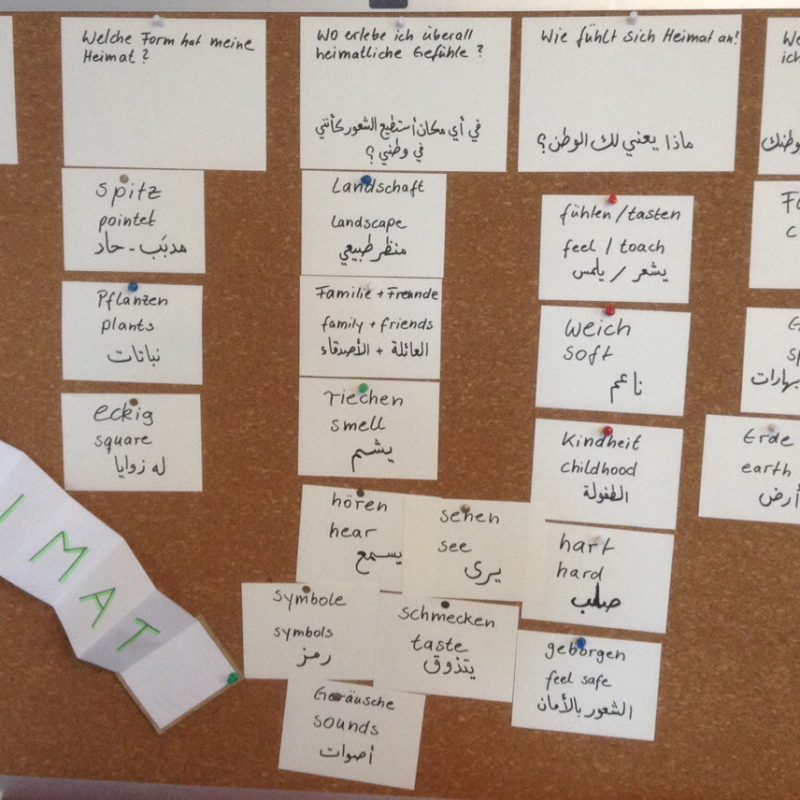 Welche Form hat meine
Heimat?
spitz
pointet
مدبَّب - حاد
Pflanzen
plants
نباتات
eckig
square
له زوايا
IMAT
Wo erlebe ich überall
heimatliche Gefühle?
في أي مكان أستطيع الشعور كأنني
في وطني؟
Landschaft
landscape
منظر طبيعي
Familie + Freunde
family + friends
العائلة + الأصدقاء
riechen
smell
يشم
hören
hear
يسمع
sehen
see
يرى
symbole
symbols
رمز
schmecken
taste
يتذوق
Geräusche
sounds
أصوات
Wie fühlt sich Heimat an!
ماذا يعني لك الوطن؟
fühlen/tasten
feel / toach
يشعر / يلمس
weich
soft
ناعم
Kindheit
childhood
الطفولة
hart
hard
صلب
geborgen
feel safe
الشعور بالأمان
We
ich
وطنك
F
c
G
sp
بهارات
Erde
earth
أرض